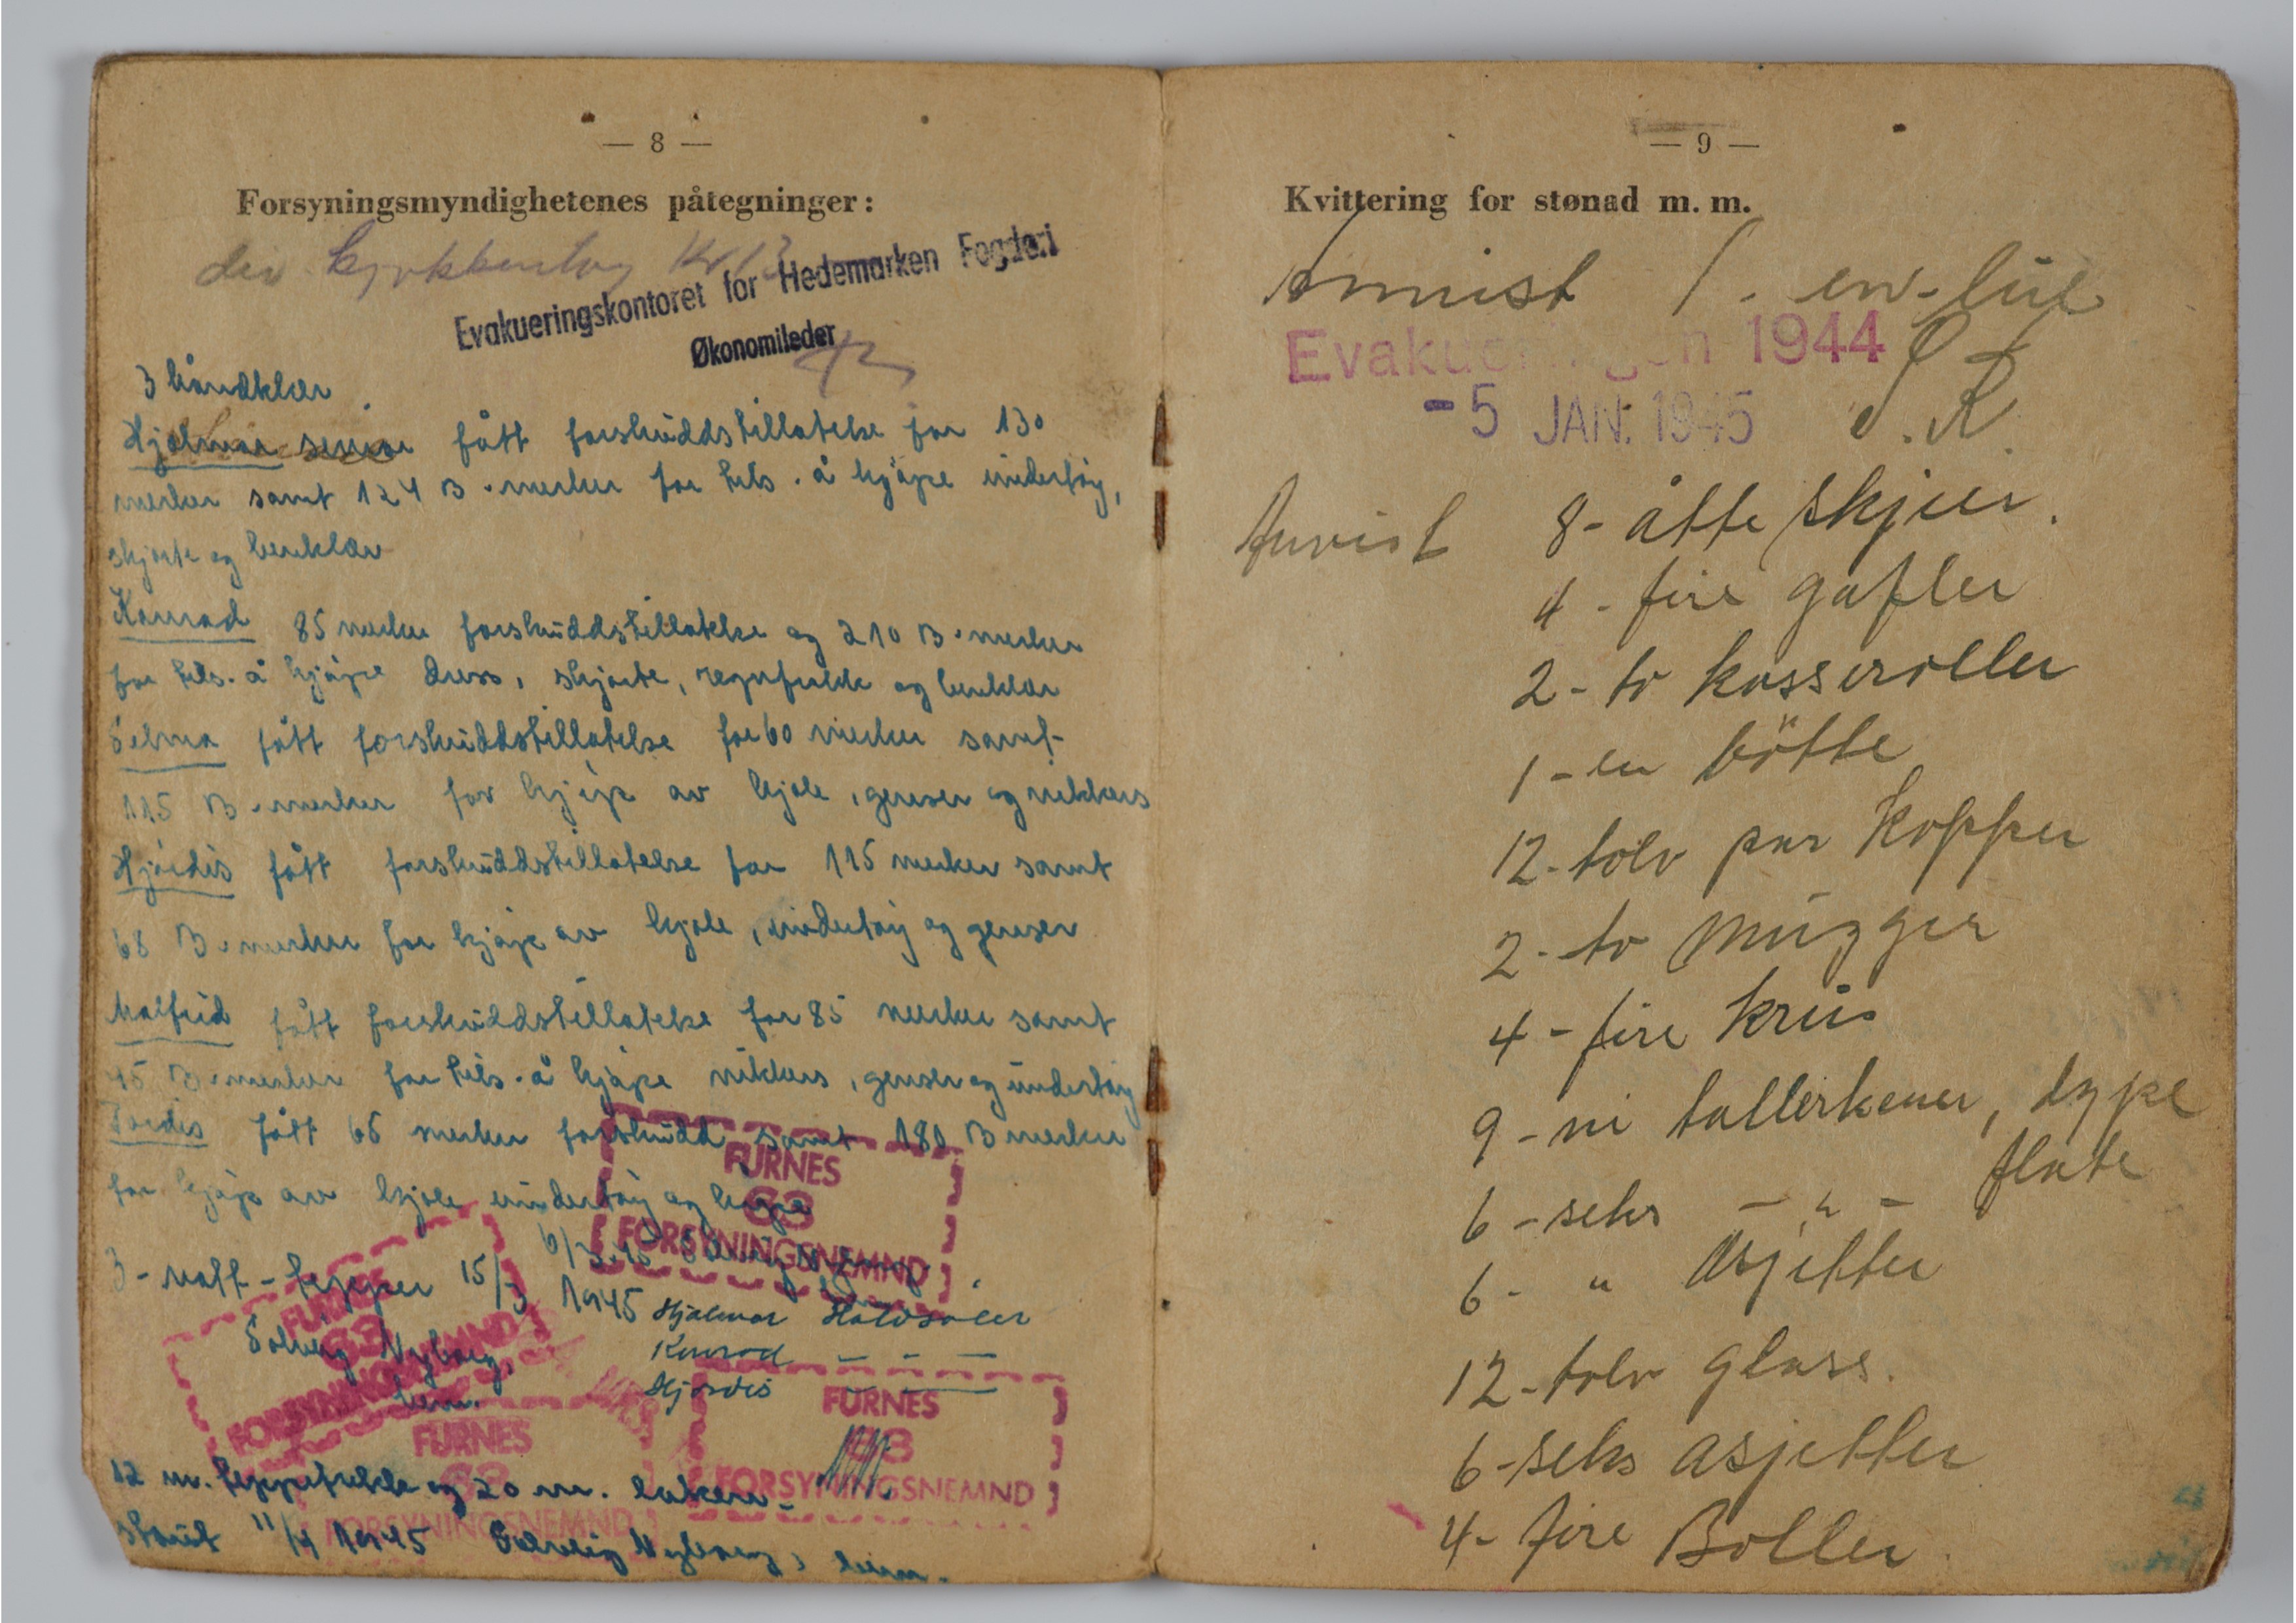 — 8 —
Forsyningsmyndighetenes påtegninger:
div kjøkkentøy Kr
Evakueringskontoret for Hedemarken Fogderi
Økonomileder
3 håndklær
Hjalmar senior fått forskuddstillatelse for 130
merker samt 124 B.merker for tils. å kjøpe undertøy,
skjorte og benklær
Konrad 85 merker forskuddstillatelse og 210 B.merker
for tils. å kjøpe dress, skjorte, regnfrakk og benklær
Selma fått forskuddstillatelse for 60 merker samt
115 B.merker for kjøp av kjole, genser og nikkers
Hjördis fått forskuddstillatelse for 115 merker samt
68 B.merker for kjøp av kjole, undertøy og genser
Malfrid fått forskuddstillatelse for 85 merker samt
45 B.merker for tils. å kjøpe nikkers, genser og undertøy
Tordis fått 65 merker forskudd samt 180 B merker
for kjøp av kjole undertøy og kåpe
FURNES
63
FORSYNINGSNEMND
3-vatt-tepper 15/3 1945
Hjalmar
Konrad — — —
Hjördis
Solveig Nyborg,
FURNES
63
FORSYNINGSNEMND
FURNES
63
FORSYNINGSNEMND
FURNES
63
FORSYNINGSNEMND
12 m. teppefrakk og 20 m. laken-
11/4 1945 Solveig Nyborg,
— 9 —
Kvittering for stønad m. m.
1 - en
Evakueringen 1944
- 5 JAN. 1945
S. R.
Anvist 8 - åtte skjeer.
4 - fire gafler
2 - to kasseroller
1 - en bøtte
12 - tolv par Kopper
2 - to Mugger
4 - fire krus
9 - ni tallerkener, dype
6 - seks — " — flate
6 - " Asjetter
12 - tolv glass.
6 - seks asjetter
4 - fire Boller.